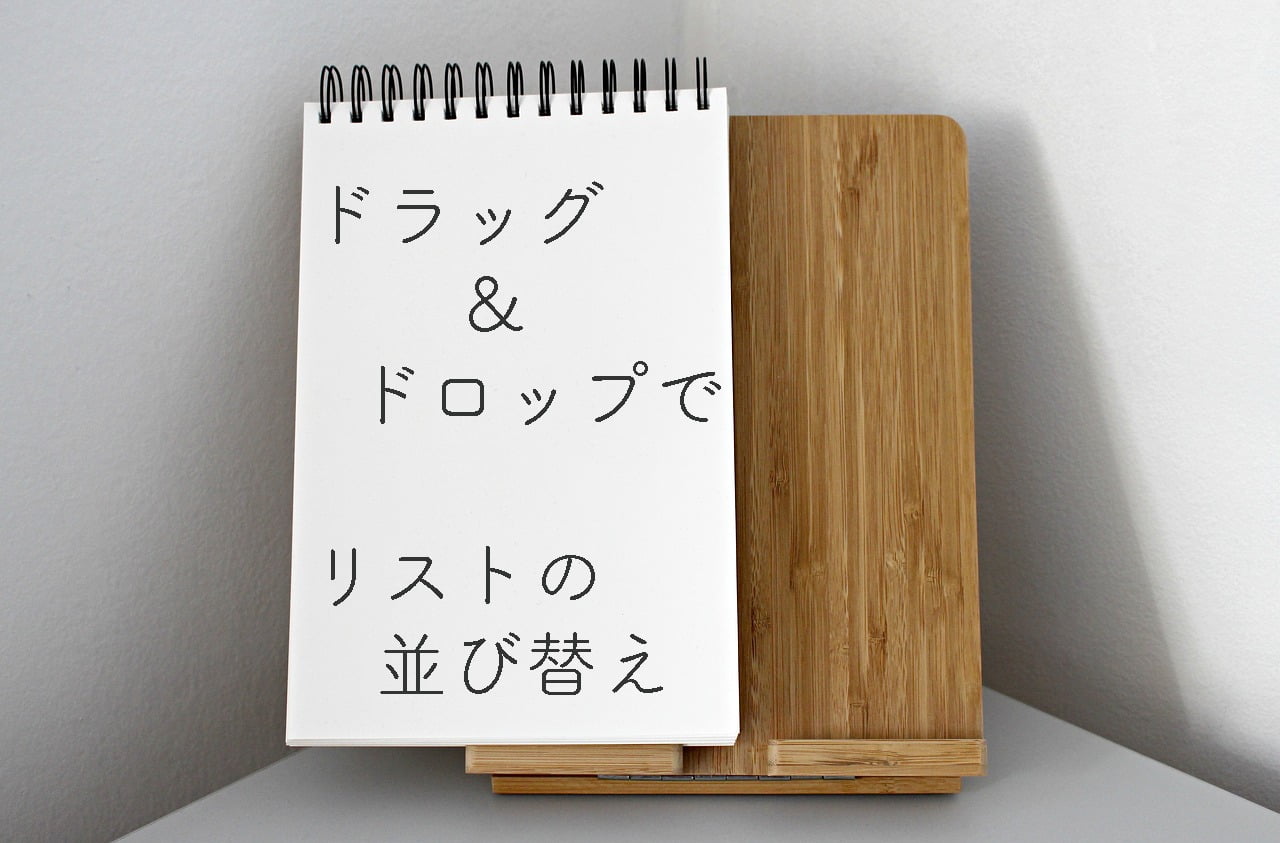 ドラッグ
&
ドロップで
リストの
並び替え